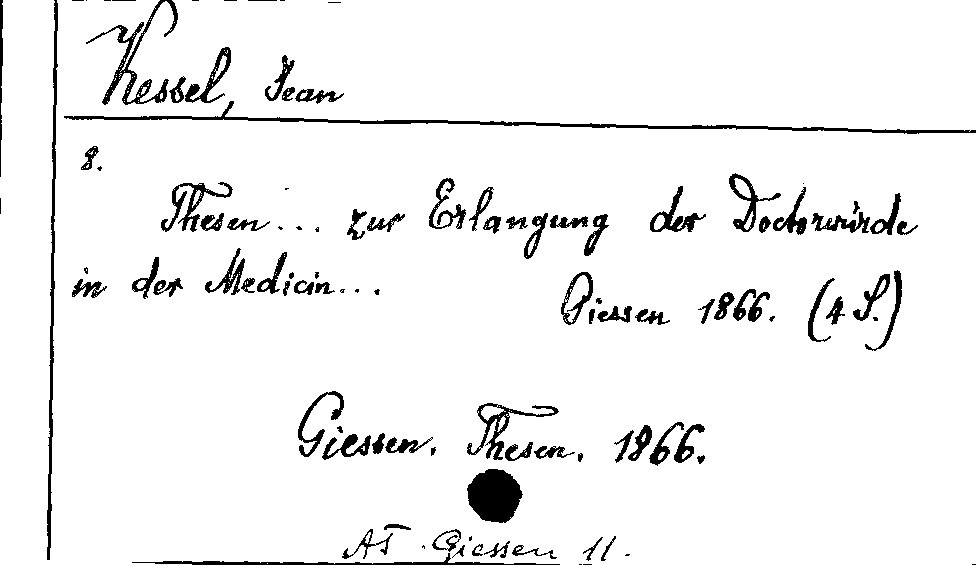 Kessel, Jean
8.
Thesen... zur Erlangung der Doctorwürde
in der Medicin...
Giessen 1866. (4 S.)
Giessen. Thesen. 1866.
AT. Giessen 11.